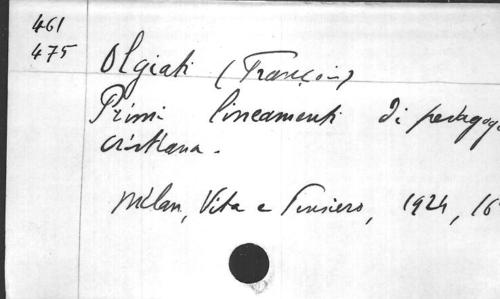 461
475
Olgiati (François)
Primi lineamenti di pedagogi
cristiana.
Milan, Vita e Pensiero, 1924, 16